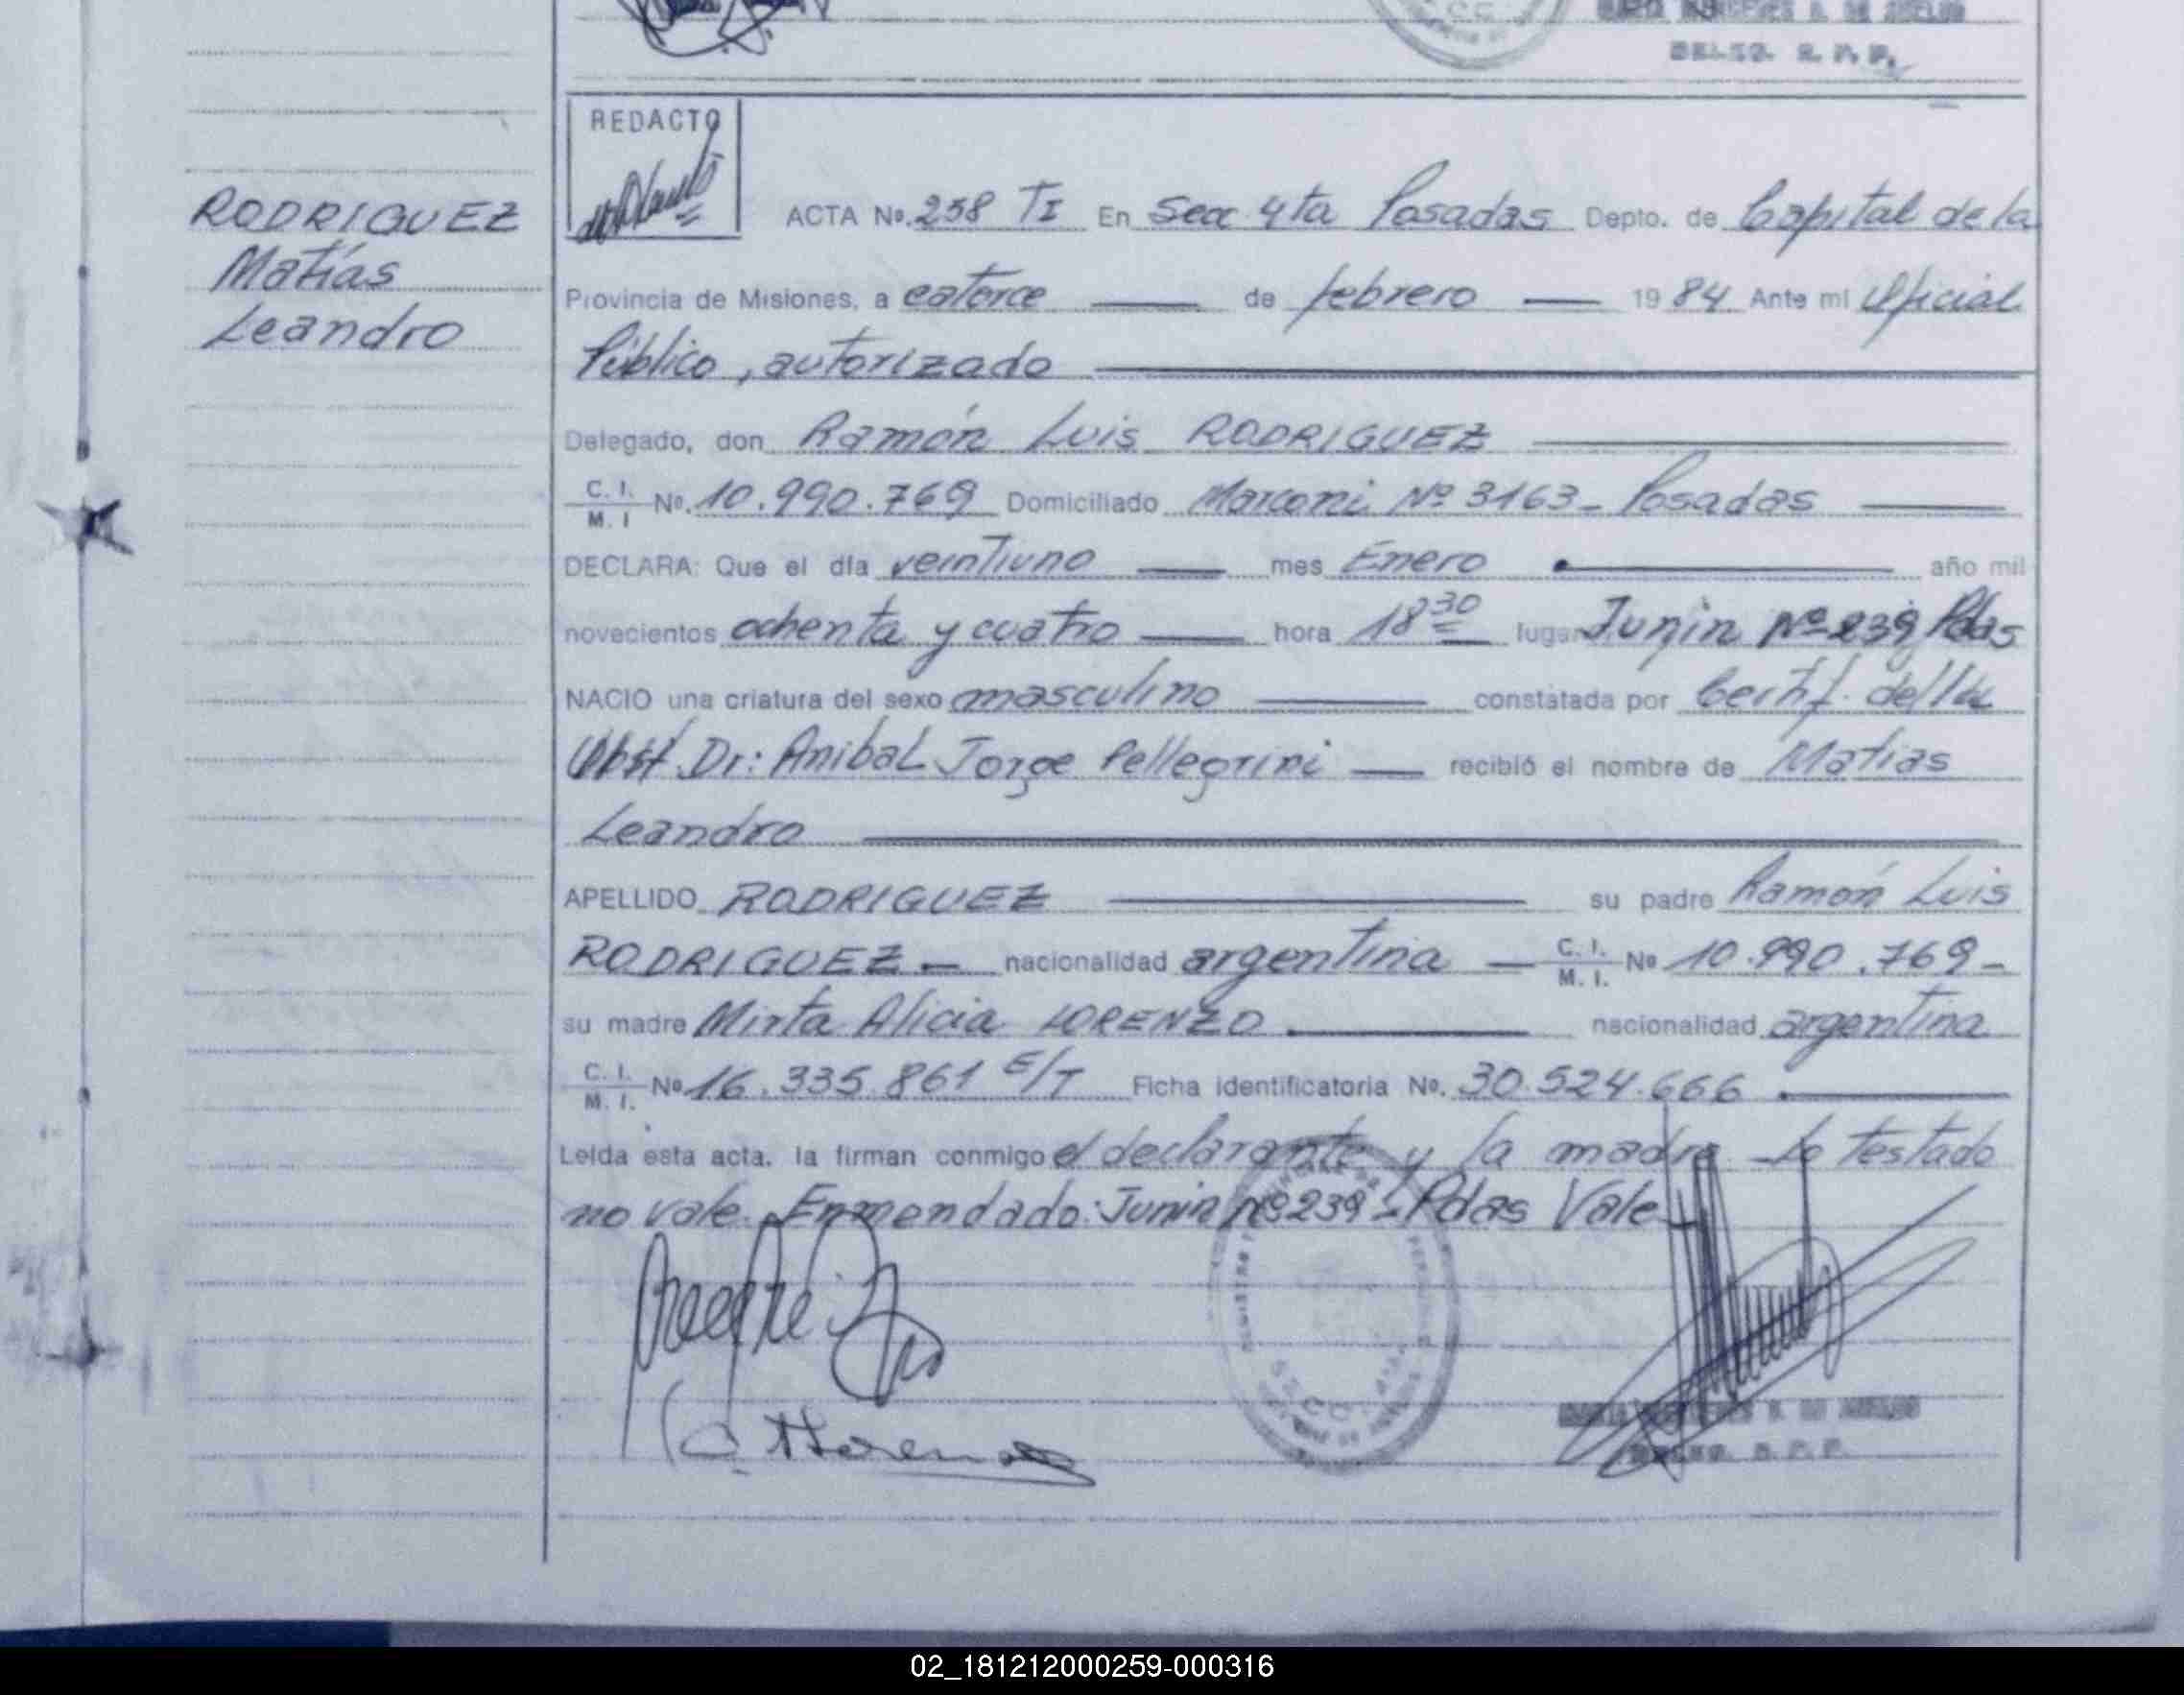 DELEG. R. P. P.
REDACTO
RODRIGUEZ
Matías
Leandro
ACTA No. 258 TI En Secc 4ta Posadas Depto. de Capital de la
Provincia de Misiones, a catorce de febrero 1984 Ante mi Oficial
Público, autorizado
Delegado, don Ramón Luis RODRIGUEZ
C. I. M. I No. 10.990.769 Domiciliado Marconi Nº 3163 - Posadas
DECLARA: Que el día veintiuno mes Enero año mil
novecientos ochenta y cuatro hora 18 30 lugar Junin Nº 239 Pdas
NACIO una criatura del sexo masculino constatada por Certif. del
Obst Dr: Anibal Jorge Pellegrini recibió el nombre de Matias
Leandro
APELLIDO RODRIGUEZ su padre Ramón Luis
RODRIGUEZ nacionalidad argentina C. I. M. I. No 10.990.769-
su madre Mirta Alicia LORENZO nacionalidad argentina
C. I. M. I. No 16.335.861 E/T Ficha identificatoria No. 30.524.666
Leída esta acta. la firman conmigo el declarante y la madre - Lo testado
no vale. Enmendado: Junin Nº 239 - Pdas Vale
DELEG. R. P. P.
02_181212000259-000316